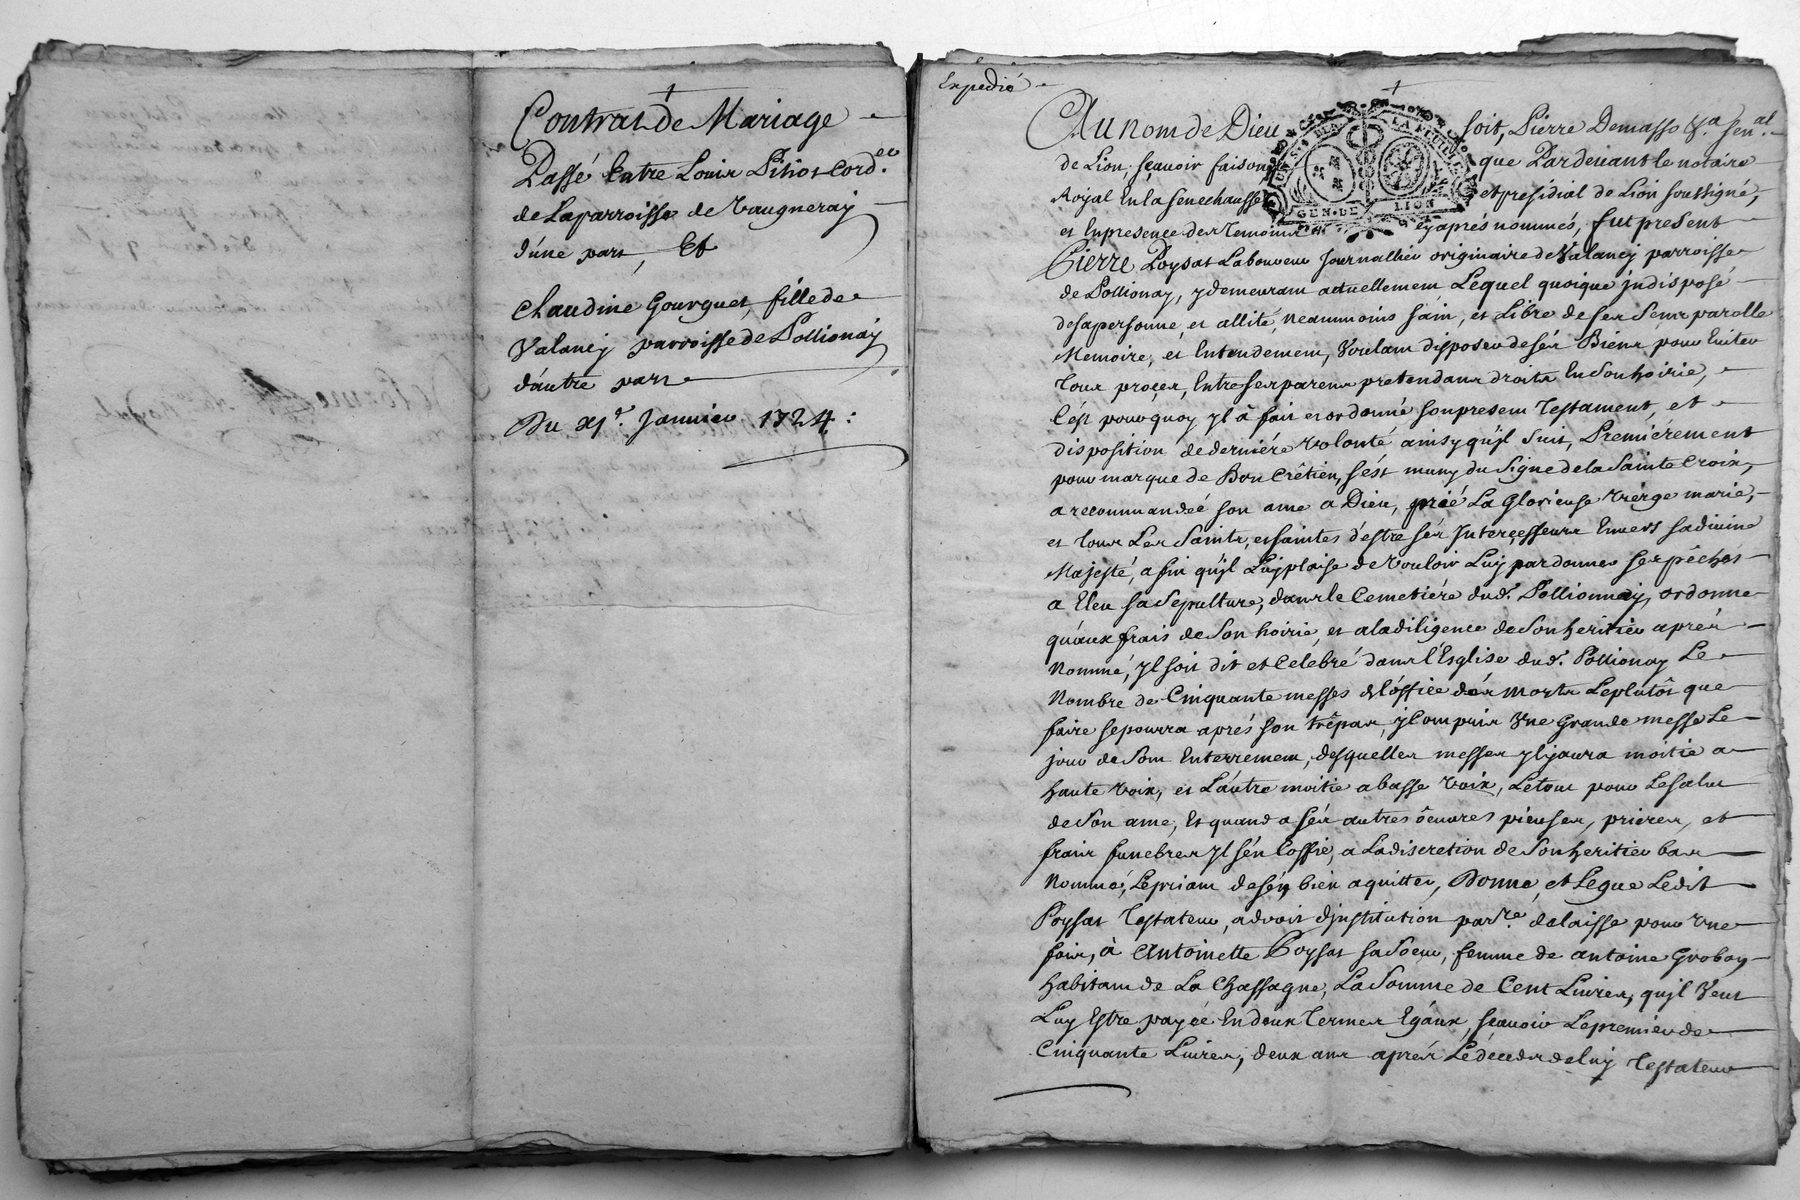 Contrat de Mariage
Passé Entre Louis Pitiot Cord.er
de Laparroisse de Vaugneray
d'une part, Et
Claudine Gourguet, fille de
Valancy parroisse de Pollionay
d'autre part
Du xj.e Janvier 1724 :
Expedié
Au nom de Dieu soit, Pierre Demasso S.al
de Lion, scavoir faisons que Pardevant le notaire
Royal en la senechaussé et presidial de Lion soussigné,
et En presence des temoins cy aprés nommés, fut present
Pierre Poysat Laboureur Journallier originaire de Valancy parroisse
de Pollionay, y demeurant actuellement Lequel quoique jndisposé
de sa personne et allité, neanmoins sain, et Libre de ses sens parolle
Memoire, et Entendement, Voulant disposer de sés Biens pour Eviter
tous procés, Entre ses parens pretendans droits En son hoirie,
C'est pourquoy yl â fait et ordonné son present Testament, et
disposition de derniére volonté ainsy qu'jl suit, Premiérement
pour marque de Bon Crêtien, s'est muny du Signe de la Sainte Croix,
a recommandéé son ame a Dieu, prié La Glorieuse Vierge marie,
et tous Les Saints, et saintes d'estre sés Jntercesseurs Envers sa divine
Majesté, afin qu'jl Luy plaise de vouloir Luy pardonner ses pêchés
a Eleu sa Sepulture, dans le Cemetiére dud. Pollionnay, ordonne
qu'aux frais de Son hoirie, et a la diligence de Son heritier aprés
Nommé, yl soit dit et Celebré dans l'Esglise dud. Pollionay Le
Nombre de Cinquante messes de l'office dés Morts Le plutôt que
faire se pourra aprés son trêpas, y Compris Vne Grande messe Le
jour de Son Enterrement, desquelles messes yl y aura moitié a
haute voix, et L'autre moitié a basse voix, Le tout pour Le salut
de Son ame, Et quand a sés autres ôeuvres pieuses, prieres, et
frais funebres yl s'en Coffie, a La discretion de Son heritier bas
Nommé, Le priant de s'én bien aquitter, Donne et Legue Ledit
Poysat Testateur, a droit d'jnstitution par.re delaisse pour Vne
fois, à Antoinette Poysat sa Soeur, femme de antoine Groboz
habitant de La Chassagne, La Somme de Cent Livres, qu'jl Veut
Luy Estre payéé En deux Termes Egaux, scavoir Le premier de
Cinquante Livres, deux ans aprés Le décéds de luy Testateur